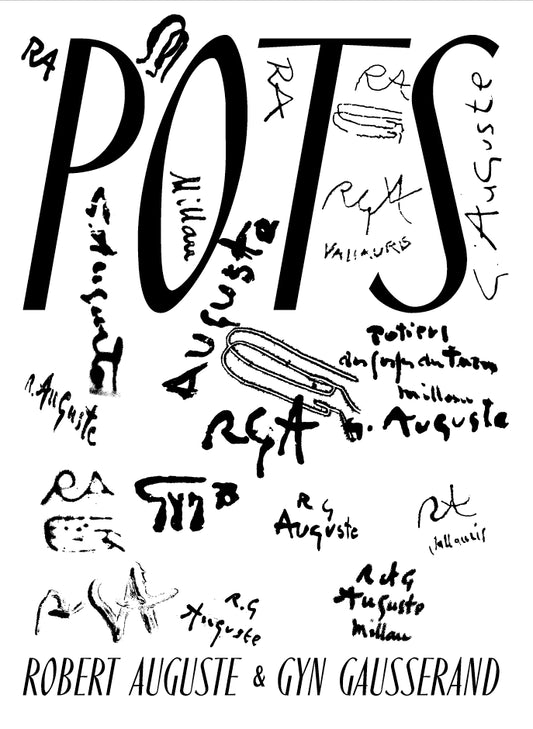 POTS
RA
RA
RA
G. Auguste
Millau
RGA
VALLAURIS
G. Auguste
Auguste
Potiers
des gorges du Tarn
Millau
R. Auguste
RGA
G. Auguste
RA
Gyn
RG
Auguste
RA
Vallauris
RGA
R.G
Auguste
RAG
Auguste
Millau
ROBERT AUGUSTE & GYN GAUSSERAND